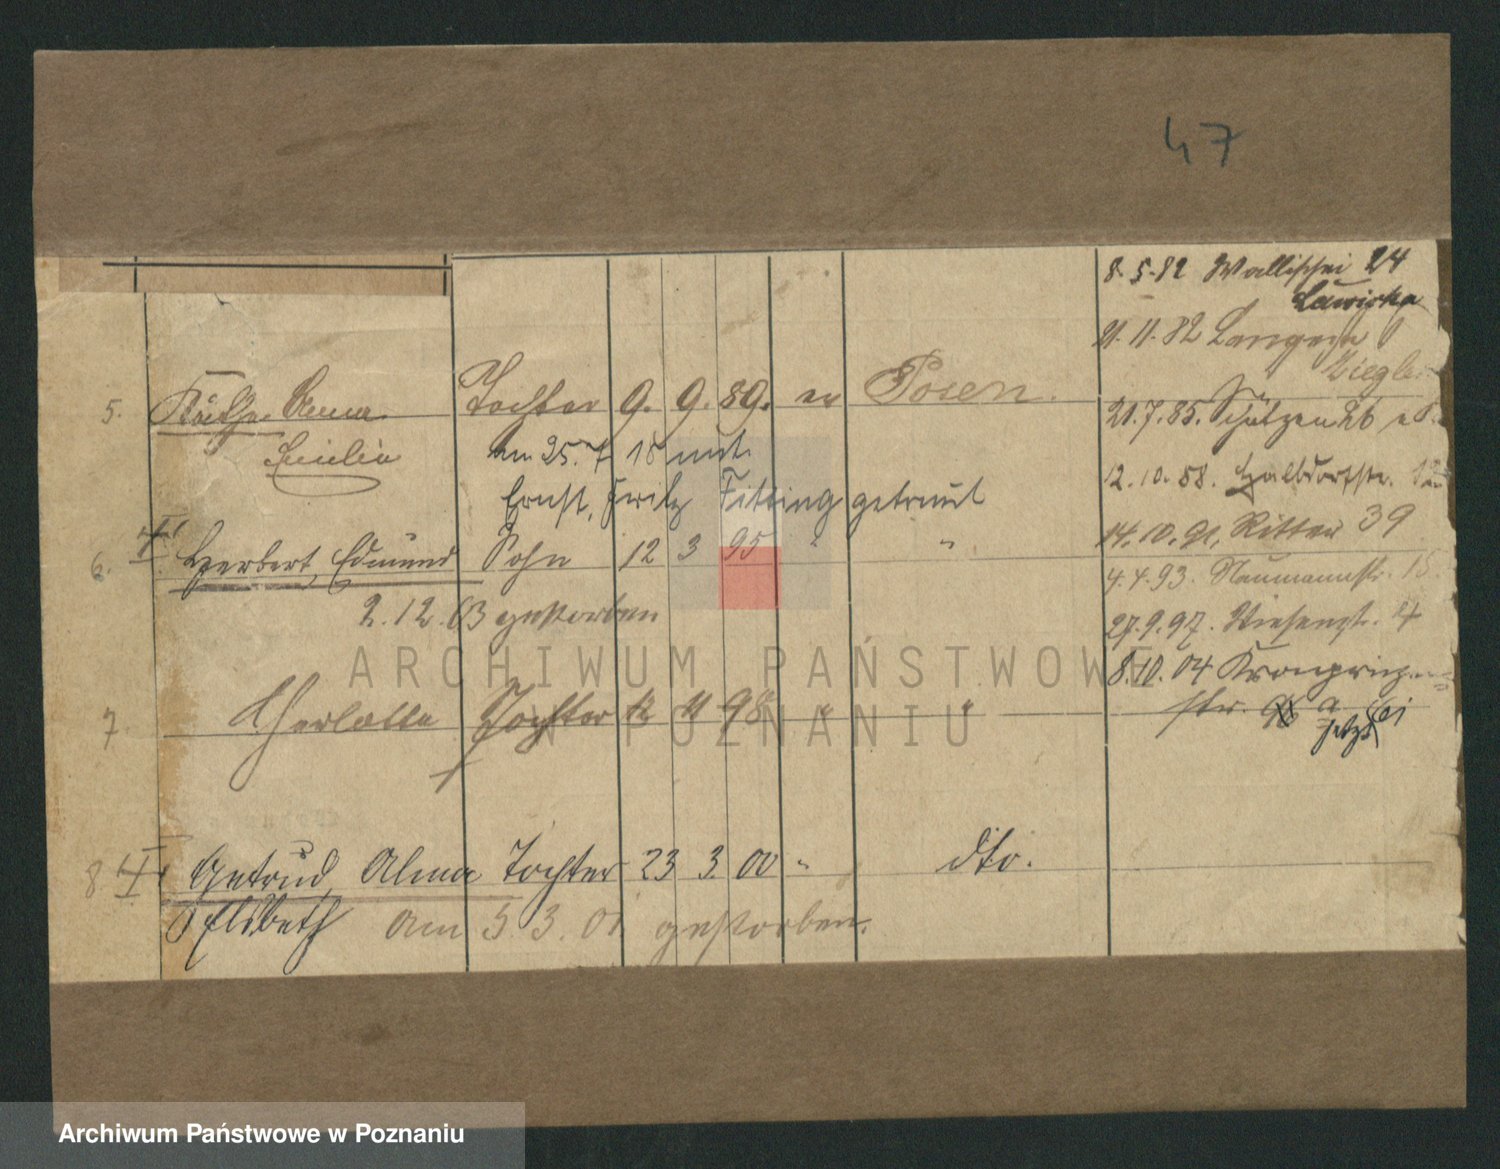 47
8.5.82 Wallischei 24
21.11.82 Lange
5. Käthe Anna Tochter 9. 9. 89. ev Posen.
Cecilie
am 25. 7 18 mit
Ernst, Fritz Fitting getraut
21.7.85. Schützen 26
12.10.88. Halbdorfstr.
14.10.91. Ritter 39
6. Herbert, Edmund Sohn 12 3 95 " "
2.12.03 gestorben
4.4.93. Naumannstr. 15.
27.9.97. Wiesenstr. 4
8.10.04 Kronprinzen=
str. a
jetzt
7. Charlotte Tochter 12 11 98 " "
8. Gertrud, Alma Tochter 23 3. 00 " dto.
Elsbeth am 5 3. 01 gestorben.
ARCHIWUM PAŃSTWOWE
W POZNANIU
Archiwum Państwowe w Poznaniu